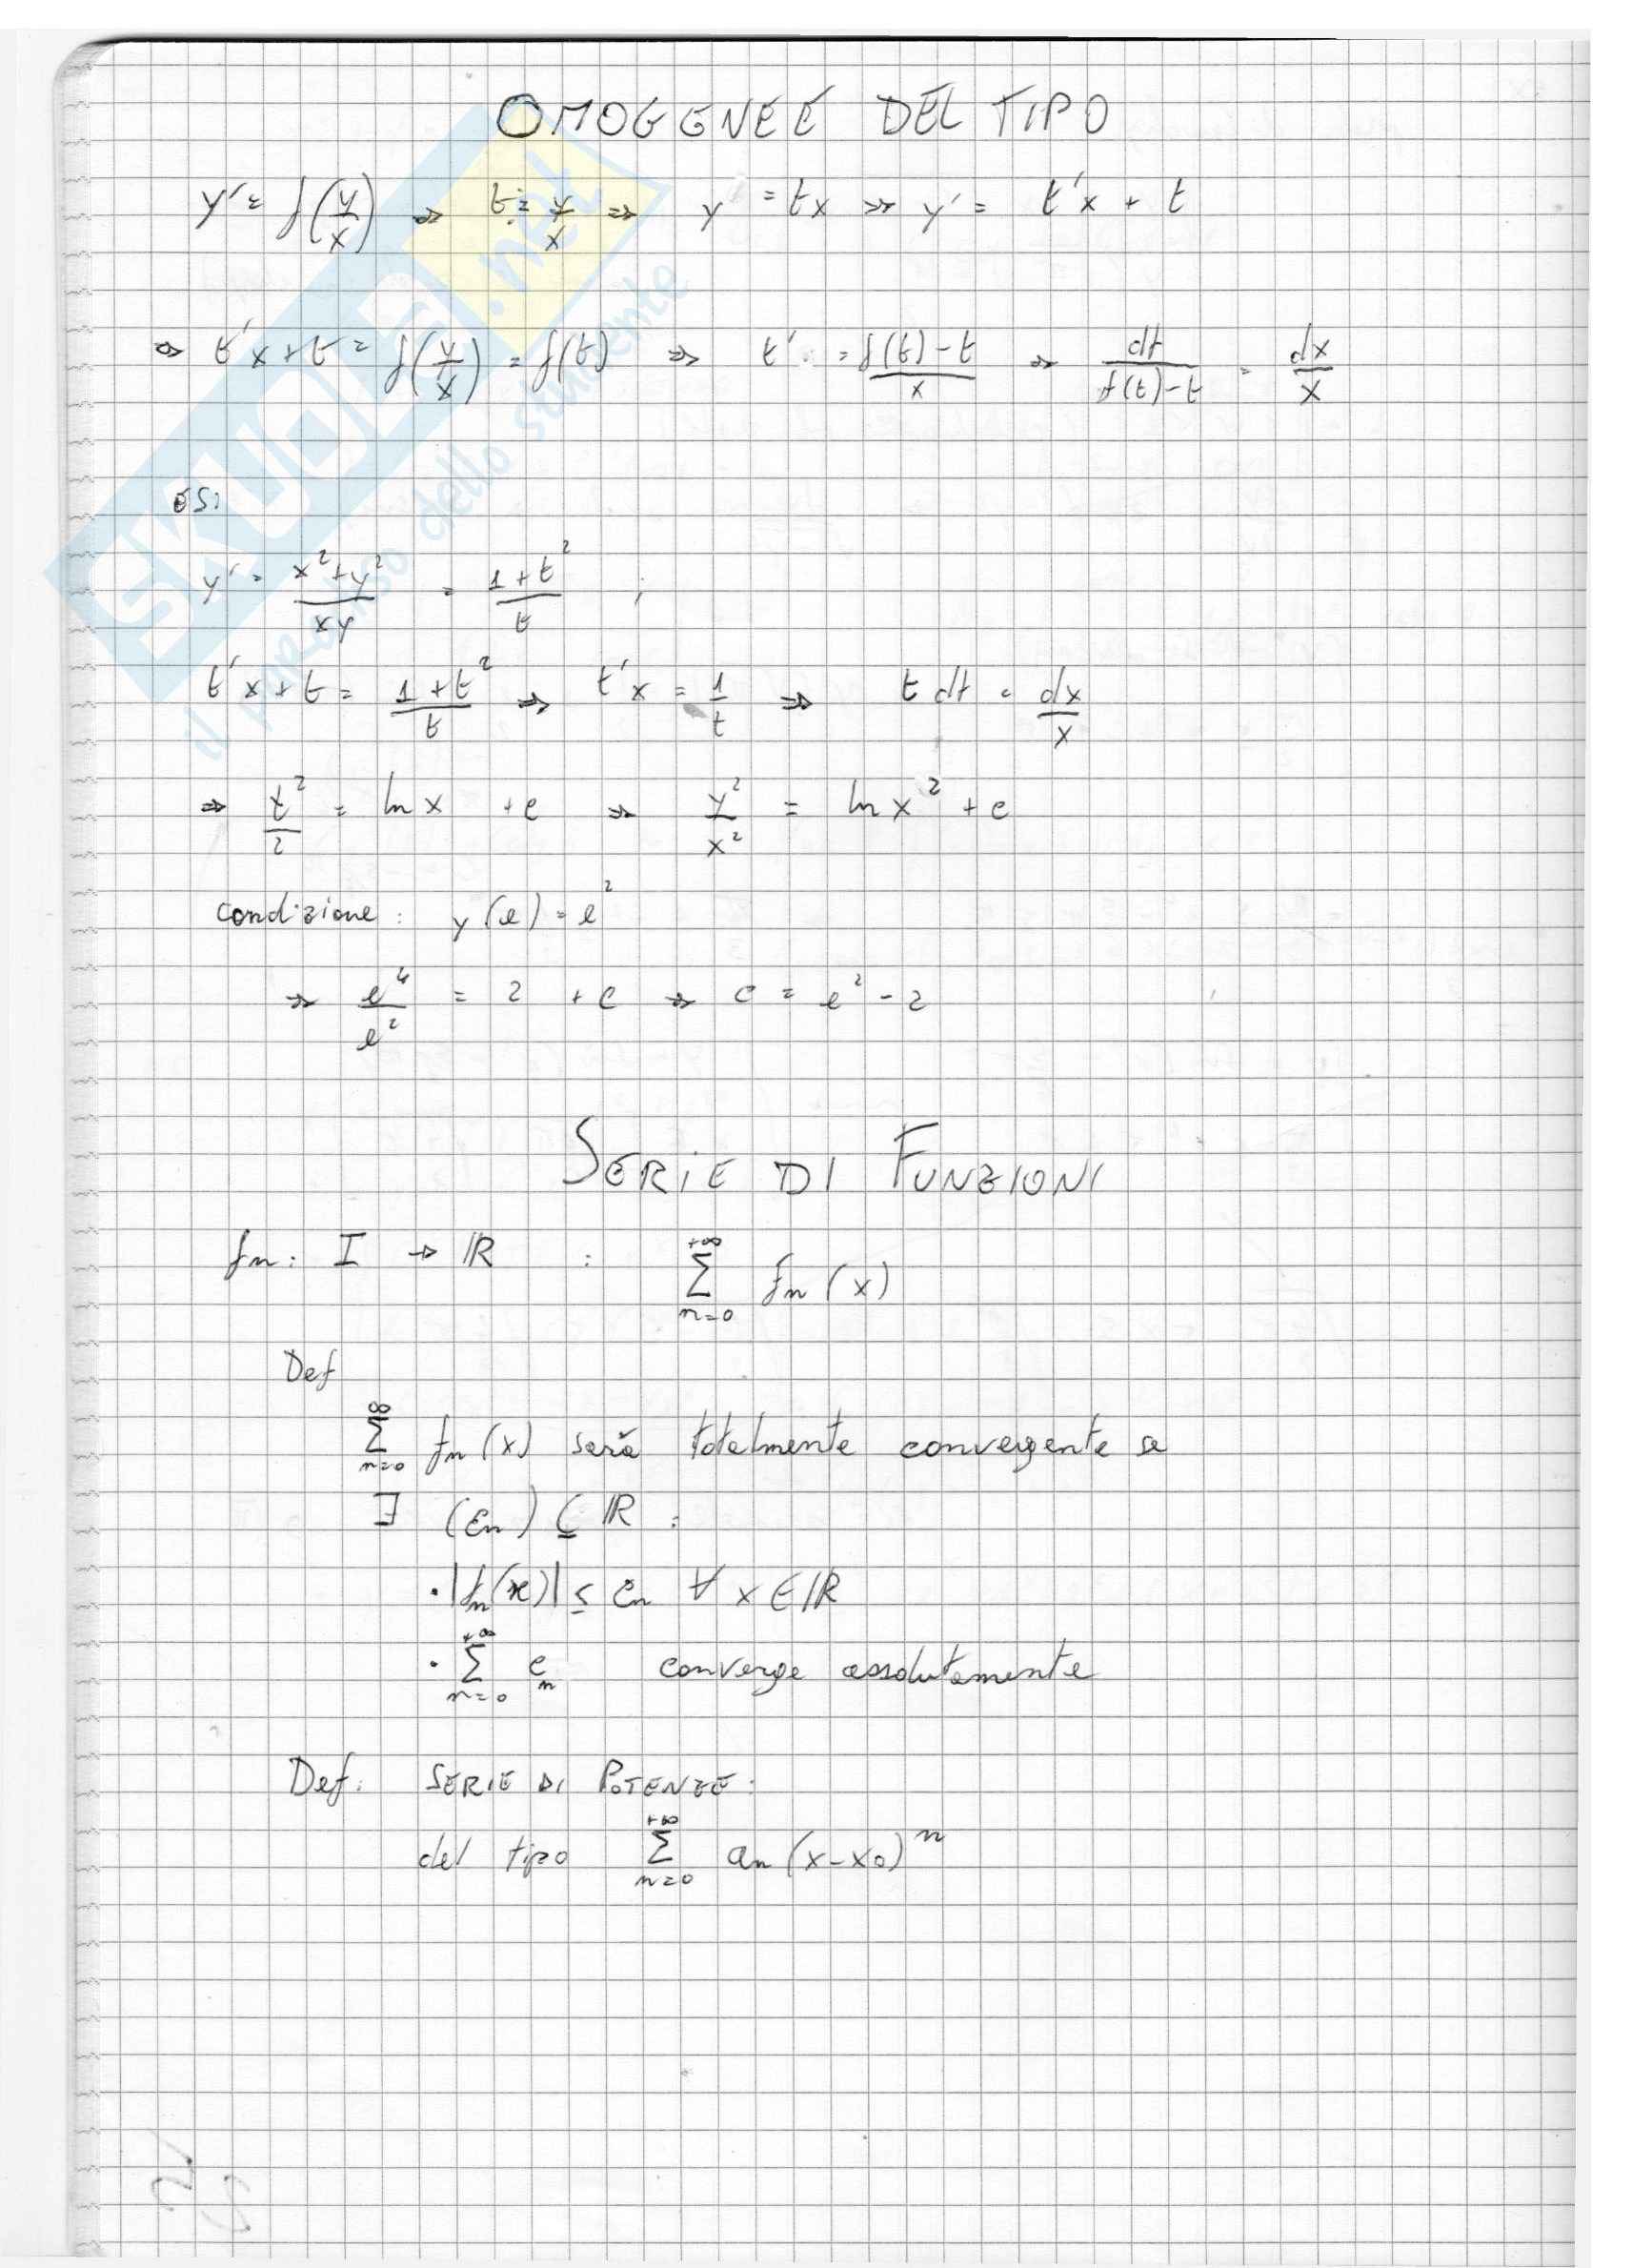 OMOGENEE DEL TIPO
y' = f(y/x) ⇒ t = y/x ⇒ y = tx ⇒ y' = t'x + t
⇒ t'x + t = f(y/x) = f(t) ⇒ t' = (f(t)-t)/x ⇒ dt/(f(t)-t) = dx/x
ES:
y' = (x²+y²)/(xy) = (1+t²)/t ;
t'x + t = (1+t²)/t ⇒ t'x = 1/t ⇒ t dt = dx/x
⇒ t²/2 = ln x + c ⇒ y²/x² = ln x² + c
condizione: y(e) = e²
⇒ e⁴/e² = 2 + c ⇒ c = e² - 2
SERIE DI FUNZIONI
fn: I → ℝ : Σ_{n=0}^{+∞} fn(x)
Def
Σ_{n=0}^{∞} fn(x) sarà totalmente convergente se
∃ (cn) ⊆ ℝ :
• |fn(x)| ≤ cn ∀ x ∈ ℝ
• Σ_{n=0}^{+∞} cn converge assolutamente
Def: SERIE DI POTENZE:
del tipo Σ_{n=0}^{+∞} an (x-x0)^n
SKUOLA.net
il paradiso dello studente